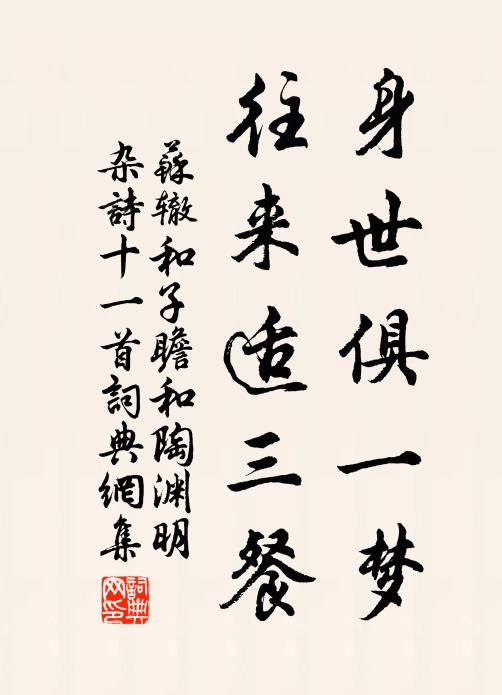 身世俱一梦
往来适三餐
苏辙和子瞻和陶渊明
杂诗十一首詞典網集
詞典网印